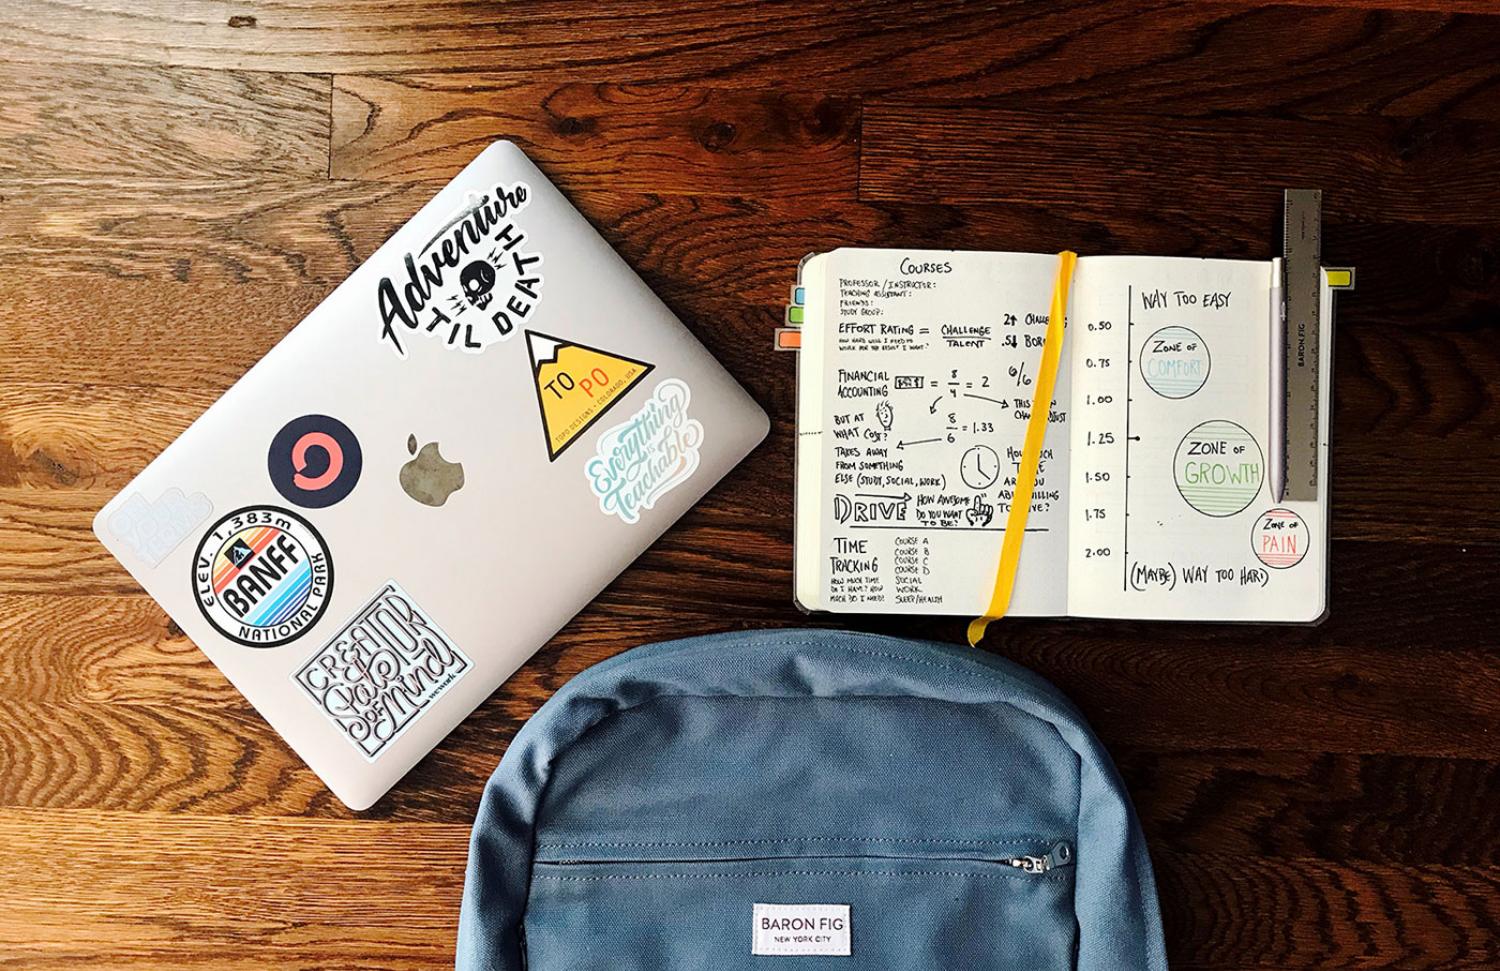 Adventure
'TIL DEATH
TO PO
TOPO DESIGNS • COLORADO, USA
Everything
is
Teachable
ELEV. 1,383m
BANFF
NATIONAL PARK
CREATOR
State
OF Mind
wework
COURSES
PROFESSOR / INSTRUCTOR:
TEACHING ASSISTANT:
FRIENDS:
STUDY GROUP:
EFFORT RATING = CHALLENGE
TALENT
HOW HARD WILL I NEED TO
WORK FOR THE RESULT I WANT?
2↑
.5↓
FINANCIAL
ACCOUNTING
= 8/4 = 2
6/6
8/6 = 1.33
BUT AT
WHAT COST?
TAKES AWAY
FROM SOMETHING
ELSE (STUDY, SOCIAL, WORK)
DRIVE
HOW AWESOME
DO YOU WANT
TO BE?
TIME
TRACKING
HOW MUCH TIME
DO I HAVE? HOW
MUCH DO I NEED?
COURSE A
COURSE B
COURSE C
COURSE D
SOCIAL
WORK
SLEEP/HEALTH
WAY TOO EASY
0.50
0.75
1.00
1.25
1.50
1.75
2.00
ZONE OF
COMFORT
ZONE OF
GROWTH
ZONE OF
PAIN
(MAYBE) WAY TOO HARD
BARON FIG
BARON FIG
NEW YORK CITY